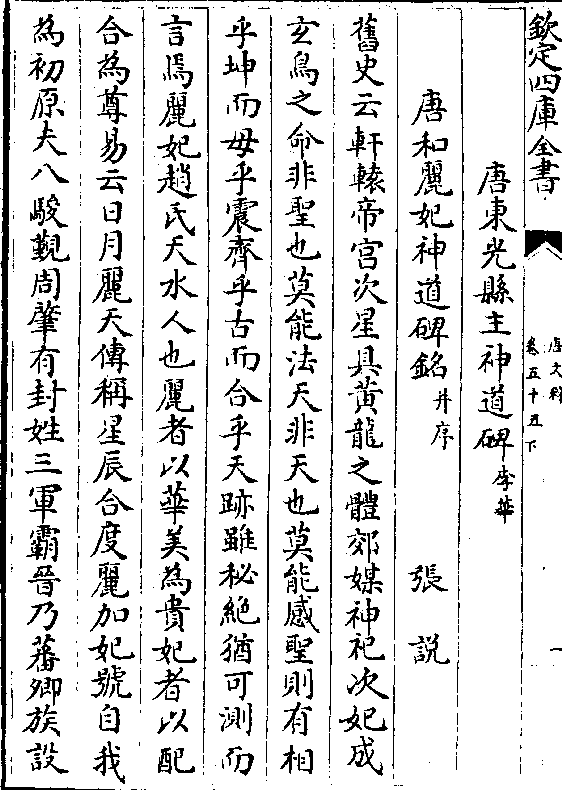 欽定四庫全書
唐文粹
卷五十五下
一
唐東光縣主神道碑李華
唐和麗妃神道碑銘并序 張說
舊史云軒轅帝宮次星具黃龍之體郊媒神祀次妃成
玄鳥之命非聖也莫能法天非天也莫能感聖則有相
乎坤而母乎震齊乎古而合乎天跡雖秘絶猶可測而
言焉麗妃趙氏天水人也麗者以華美為貴妃者以配
合為尊易云日月麗天傳稱星辰合度麗加妃號自我
為初原夫八駿覲周肇有封姓三軍霸晉乃蕃卿族設